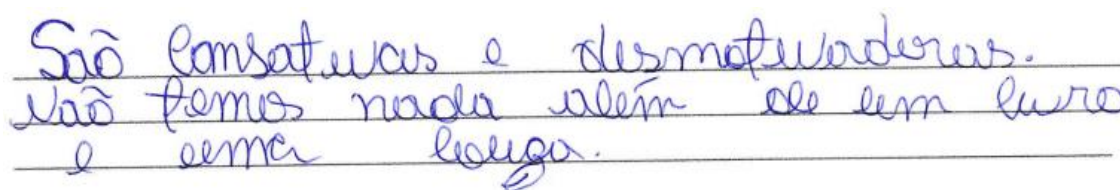 São cansativas e desmotivadoras.
Não temos nada além de um livro
e uma lousa.